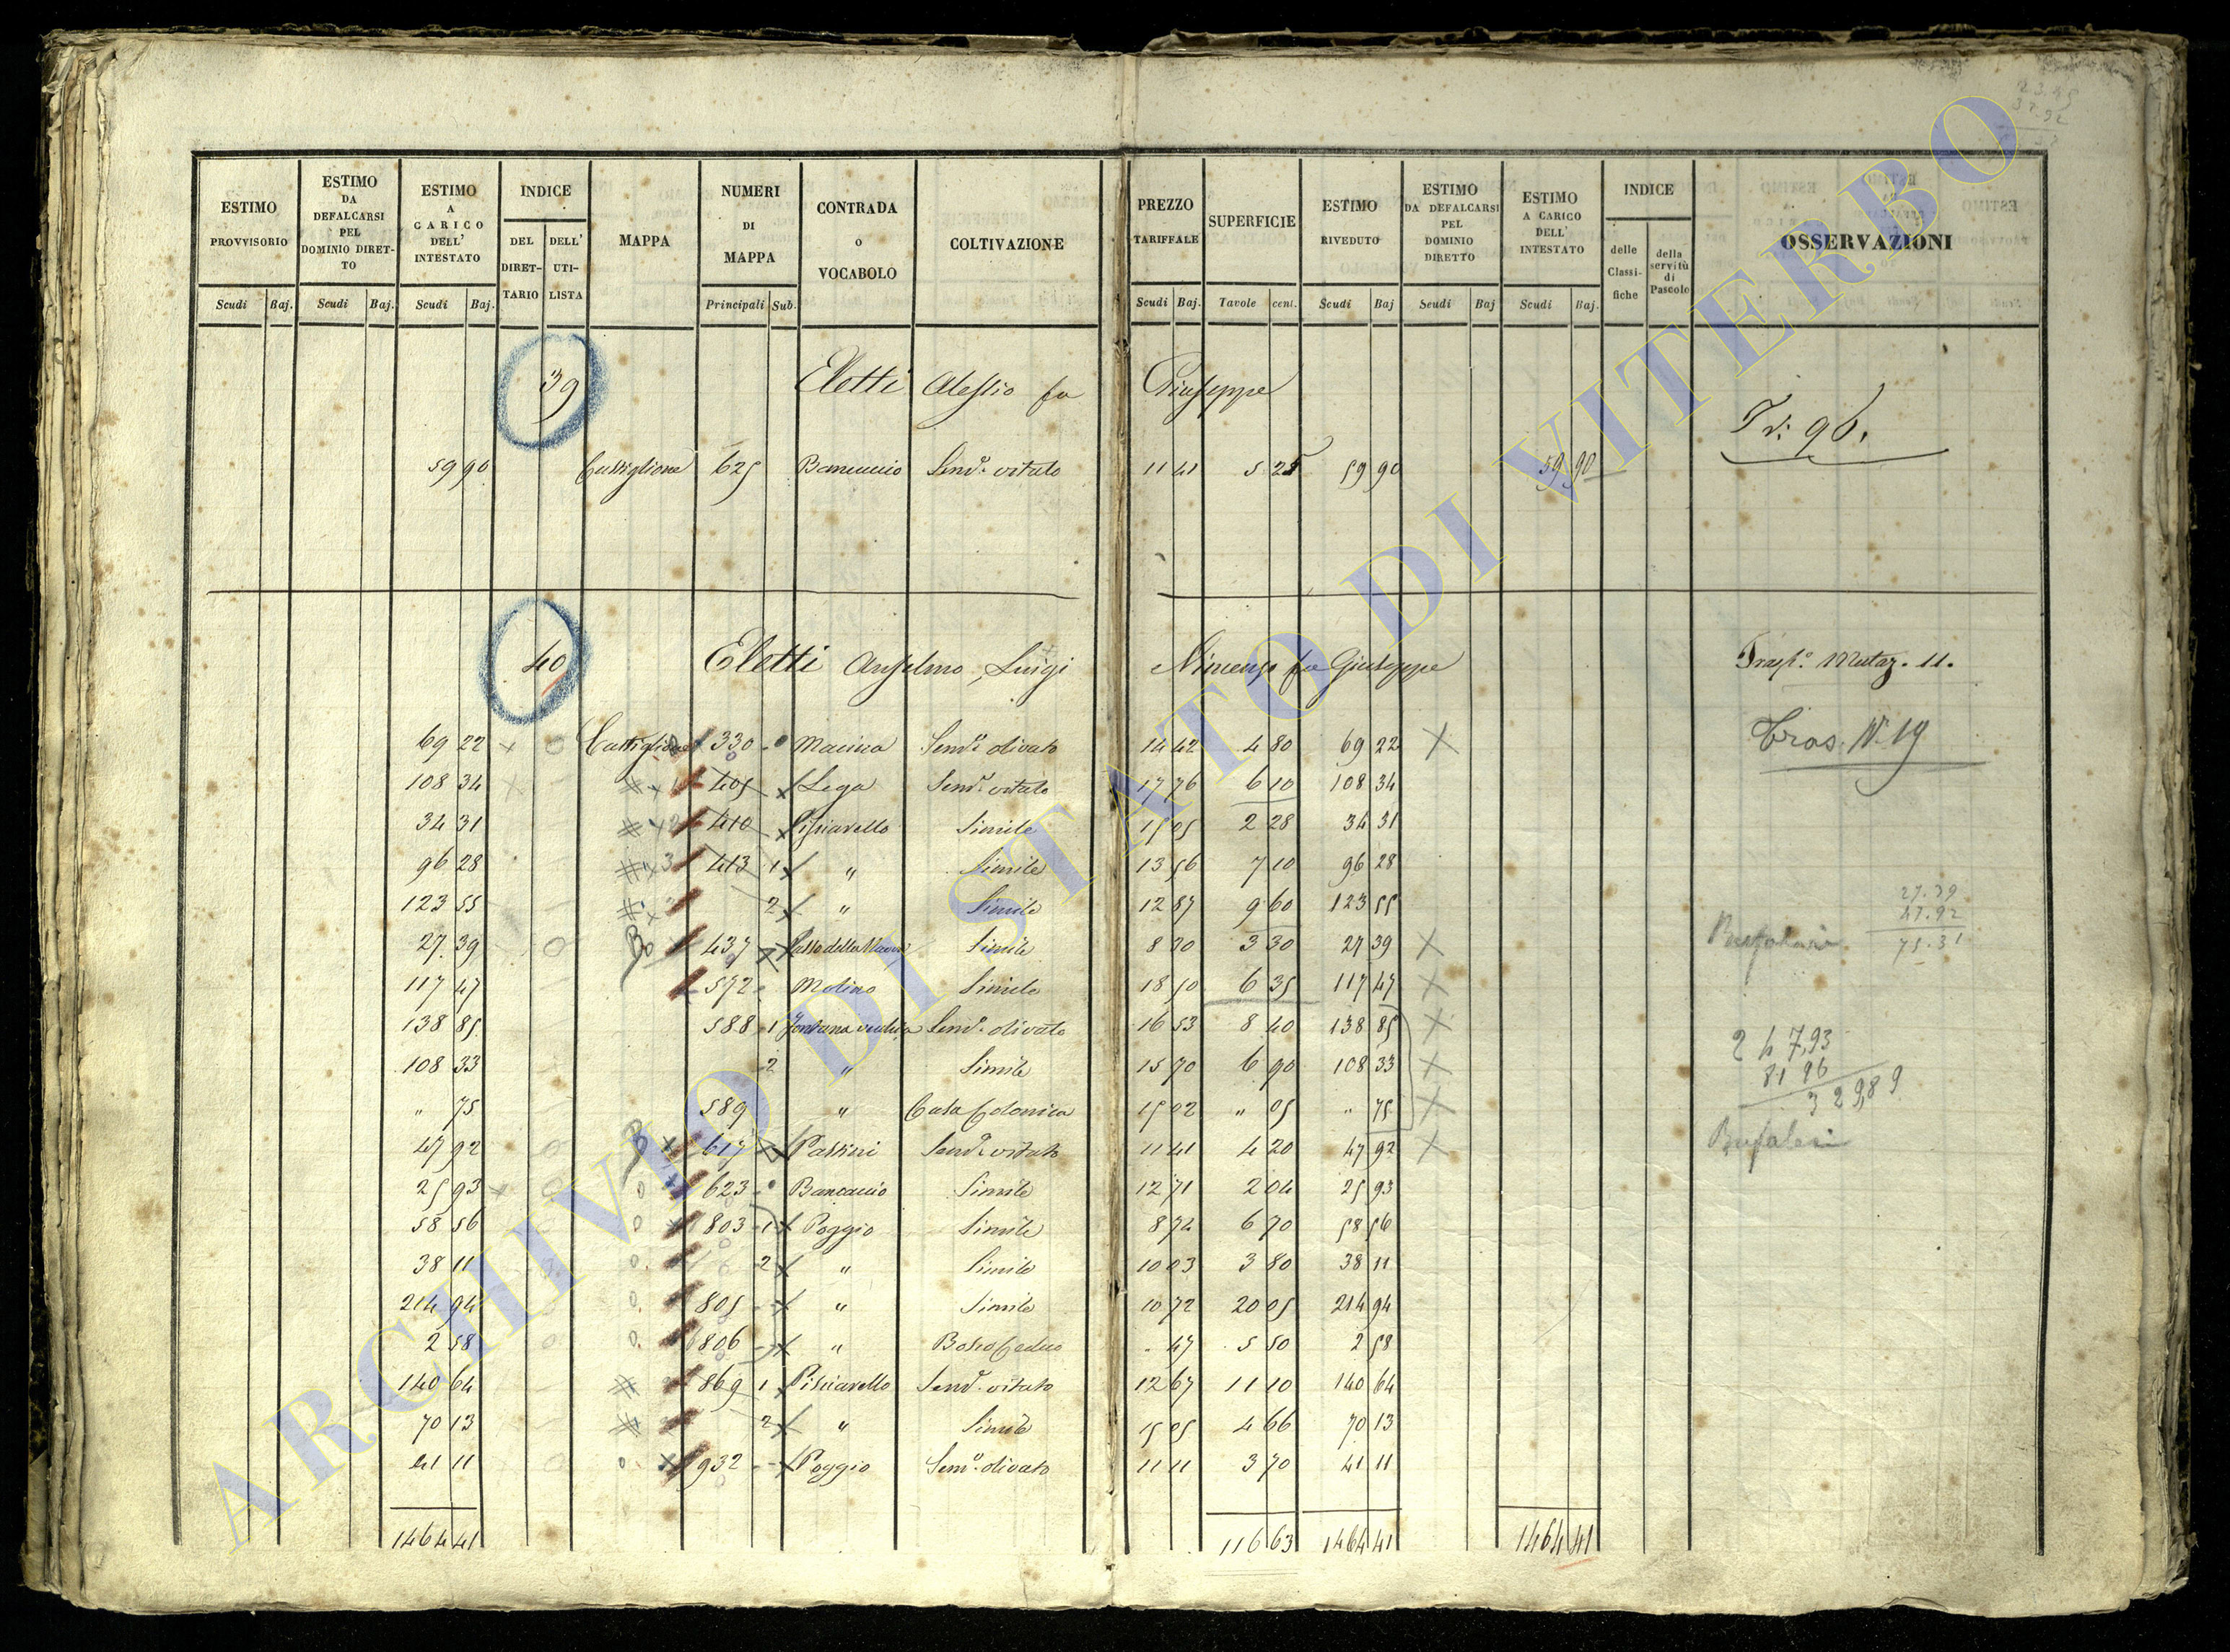 ESTIMO PROVVISORIO Scudi Baj.
ESTIMO DA DEFALCARSI PEL DOMINIO DIRETTO Scudi Baj.
ESTIMO A CARICO DELL' INTESTATO Scudi Baj.
INDICE DEL DIRETTARIO DELL' UTILISTA
MAPPA
NUMERI DI MAPPA Principali Sub.
CONTRADA O VOCABOLO
COLTIVAZIONE
PREZZO TARIFFALE Scudi Baj.
SUPERFICIE Tavole cent.
ESTIMO RIVEDUTO Scudi Baj
ESTIMO DA DEFALCARSI PEL DOMINIO DIRETTO Scudi Baj
ESTIMO A CARICO DELL' INTESTATO Scudi Baj.
INDICE delle Classifiche della servitù di Pascolo
OSSERVAZIONI
39 Eletti Alessio fu Giuseppe
Tr: 96.
59 90 Castiglione 625 Bancuccio Semo. vitato 11 41 5 25 59 90 59 90
40 Eletti Anselmo, Luigi Vincenzo fu Giuseppe Trasp.o Mutaz. 11.
Tras. N. 19
69 22 Castiglione 330 Macina Semo. olivato 14 42 4 80 69 22
108 34 405 Lega Semo. vitato 17 76 6 10 108 34
34 31 410 Pisciarello Simile 15 05 2 28 34 31
96 28 413 1 " Simile 13 56 7 10 96 28
123 55 2 " Simile 12 87 9 60 123 55
27.39
47.92
75.31
27 39 Bo 437 Simile 8 30 3 30 27 39 Bufalari
117 47 572 Molino Simile 18 50 6 35 117 47
138 85 588 1 Fontana vecchia Semo. olivato 16 53 8 40 138 85
247,93
81 96
329,89
108 33 2 " Simile 15 70 6 90 108 33
" 75 589 " Casa Colonica 15 02 " 05 " 75
47 92 B 617 Passini Semo. vitato 11 41 4 20 47 92 Bufalari
25 93 623 Bancaccio Simile 12 71 2 04 25 93
58 56 803 1 Poggio Simile 8 74 6 70 58 56
38 11 2 " Simile 10 03 3 80 38 11
214 94 805 " Simile 10 72 20 05 214 94
2 58 806 " Bosco Ceduo 47 5 50 2 58
140 64 869 1 Pisciarello Semo. vitato 12 67 11 10 140 64
70 13 2 " Simile 15 05 4 66 70 13
41 11 932 Poggio Semo. olivato 11 11 3 70 41 11
1464 41 116 63 1464 41 1464 41
ARCHIVIO DI STATO DI VITERBO